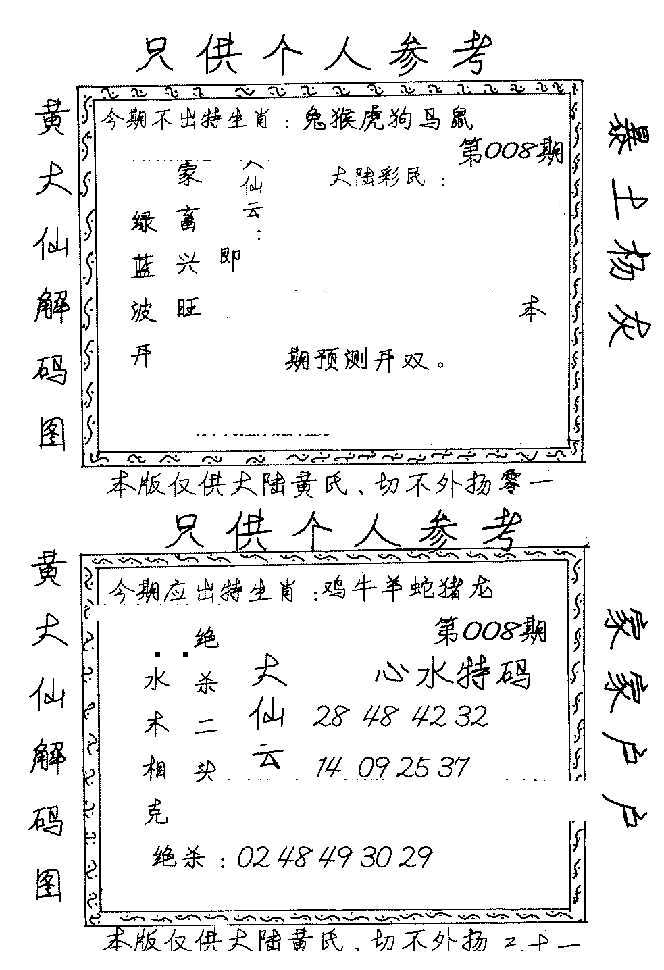 只供个人参考
黄大仙解码图
今期不出特生肖：兔猴虎狗马鼠
第008期
大陆彩民：
大仙云：
家畜兴旺
即
绿蓝波开
本
期预测开双。
暴土杨灰
本版仅供大陆黄氏、切不外扬零一
只供个人参考
黄大仙解码图
今期应出特生肖：鸡牛羊蛇猪龙
第008期
心水特码
大仙云
绝杀二头
水木相克
28 48 42 32
14 09 25 37
绝杀：02 48 49 30 29
家家户户
本版仅供大陆黄氏、切不外扬二十一